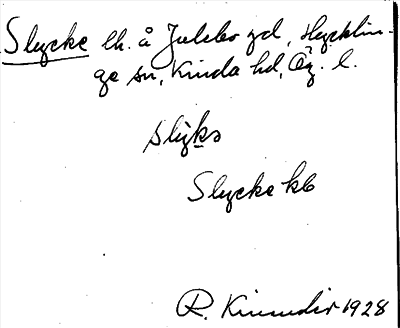 Slycke lh. å Julebo gd, Hycklin-
ge sn, Kinda hd, Ög. l.
slyks
Slycke kb
R. Kinnander 1928